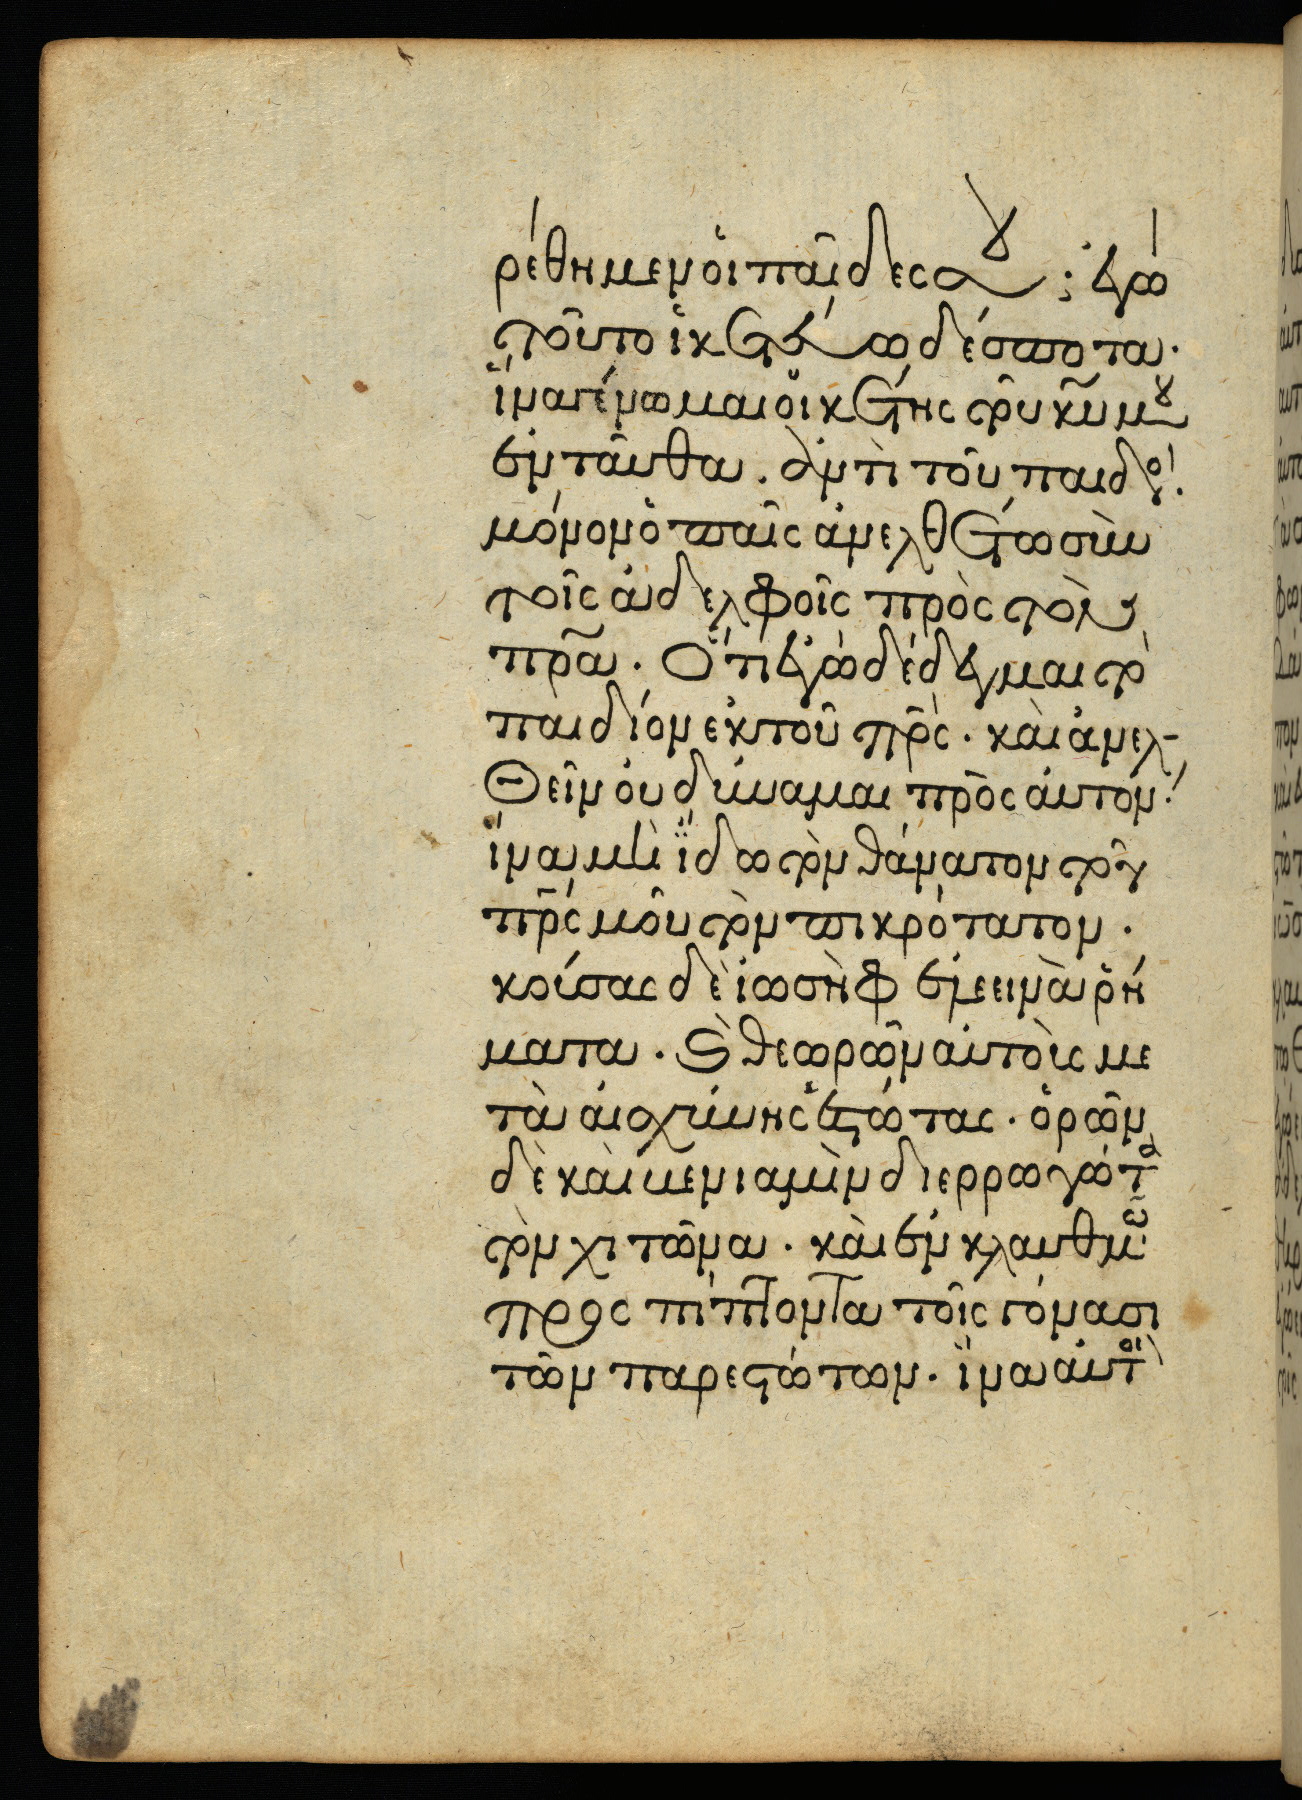 ρέθημεν οἱ παῖδές σου; ἐγὼ
τοῦτο ἱκετεύω δέσποτα.
ἵνα γένωμαι οἰκέτης τοῦ κυ̃ μου
ἐνταῦθα. ἀντὶ τοῦ παιδίου.
μόνον ὁ παῖς ἀνελθέτω σὺν
τοῖς ἀδελφοῖς πρὸς τὸν
πρ̃α. Ὅτι ἐγὼ δέδεγμαι τὸ
παιδίον ἐκ τοῦ πρ̃ς. καὶ ἀνελ-
θεῖν οὐ δύναμαι πρὸς αὐτόν.
ἵνα μὴ ἴδω τὸν θάνατον τοῦ
πρ̃ς μοῦ τὸν πικρότατον.
κούσας δὲ ἰωσὴφ ἐκεινὰ ῥή
ματα. καὶ θεωρῶν αὐτοὺς με
τὰ αἰσχύνης ἑστῶτας. ὁρῶν
δὲ καὶ βενιαμὶν διερρωγότα
τὸν χιτῶνα. καὶ ἐν κλαυθμῶ
προσπίπτοντα τοῖς γόνασι
τῶν παρεστώτων. ἵνα αὐτοὶ